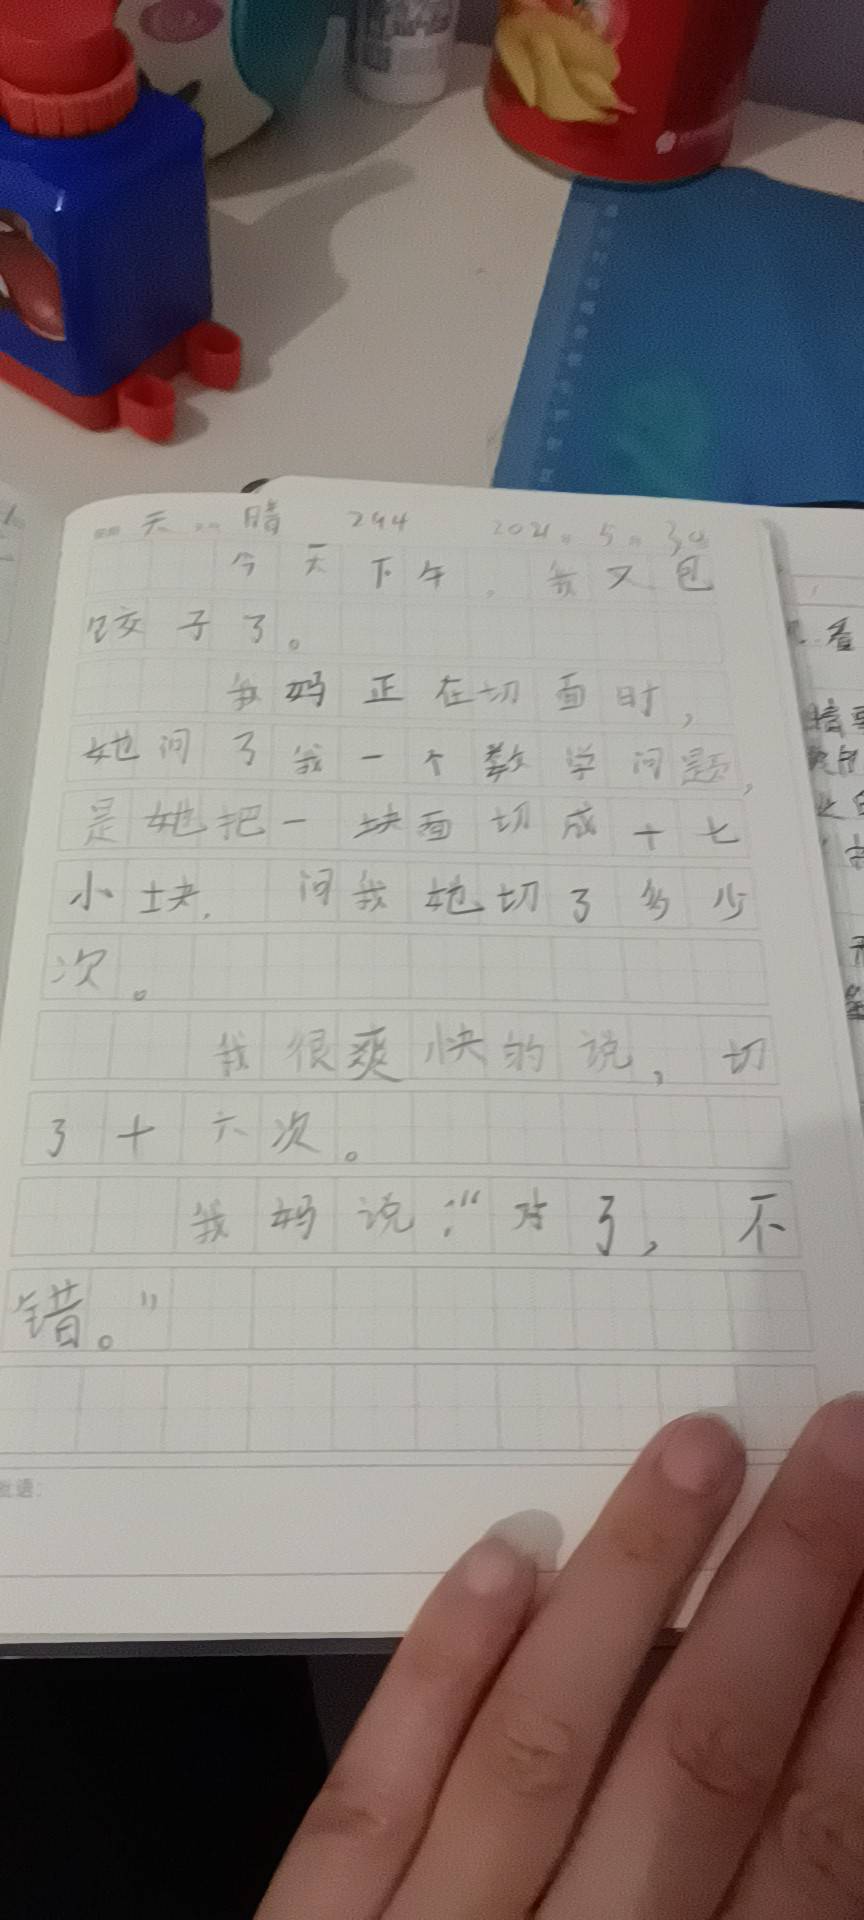 天 晴 244 2021.5.30
今天下午，我又包
饺子了。
我妈正在切面时，
她问了我一个数学问题，
是她把一块面切成十七
小块，问我她切了多少
次。
我很爽快的说，切
了十六次。
我妈说：“对了，不
错。”
看